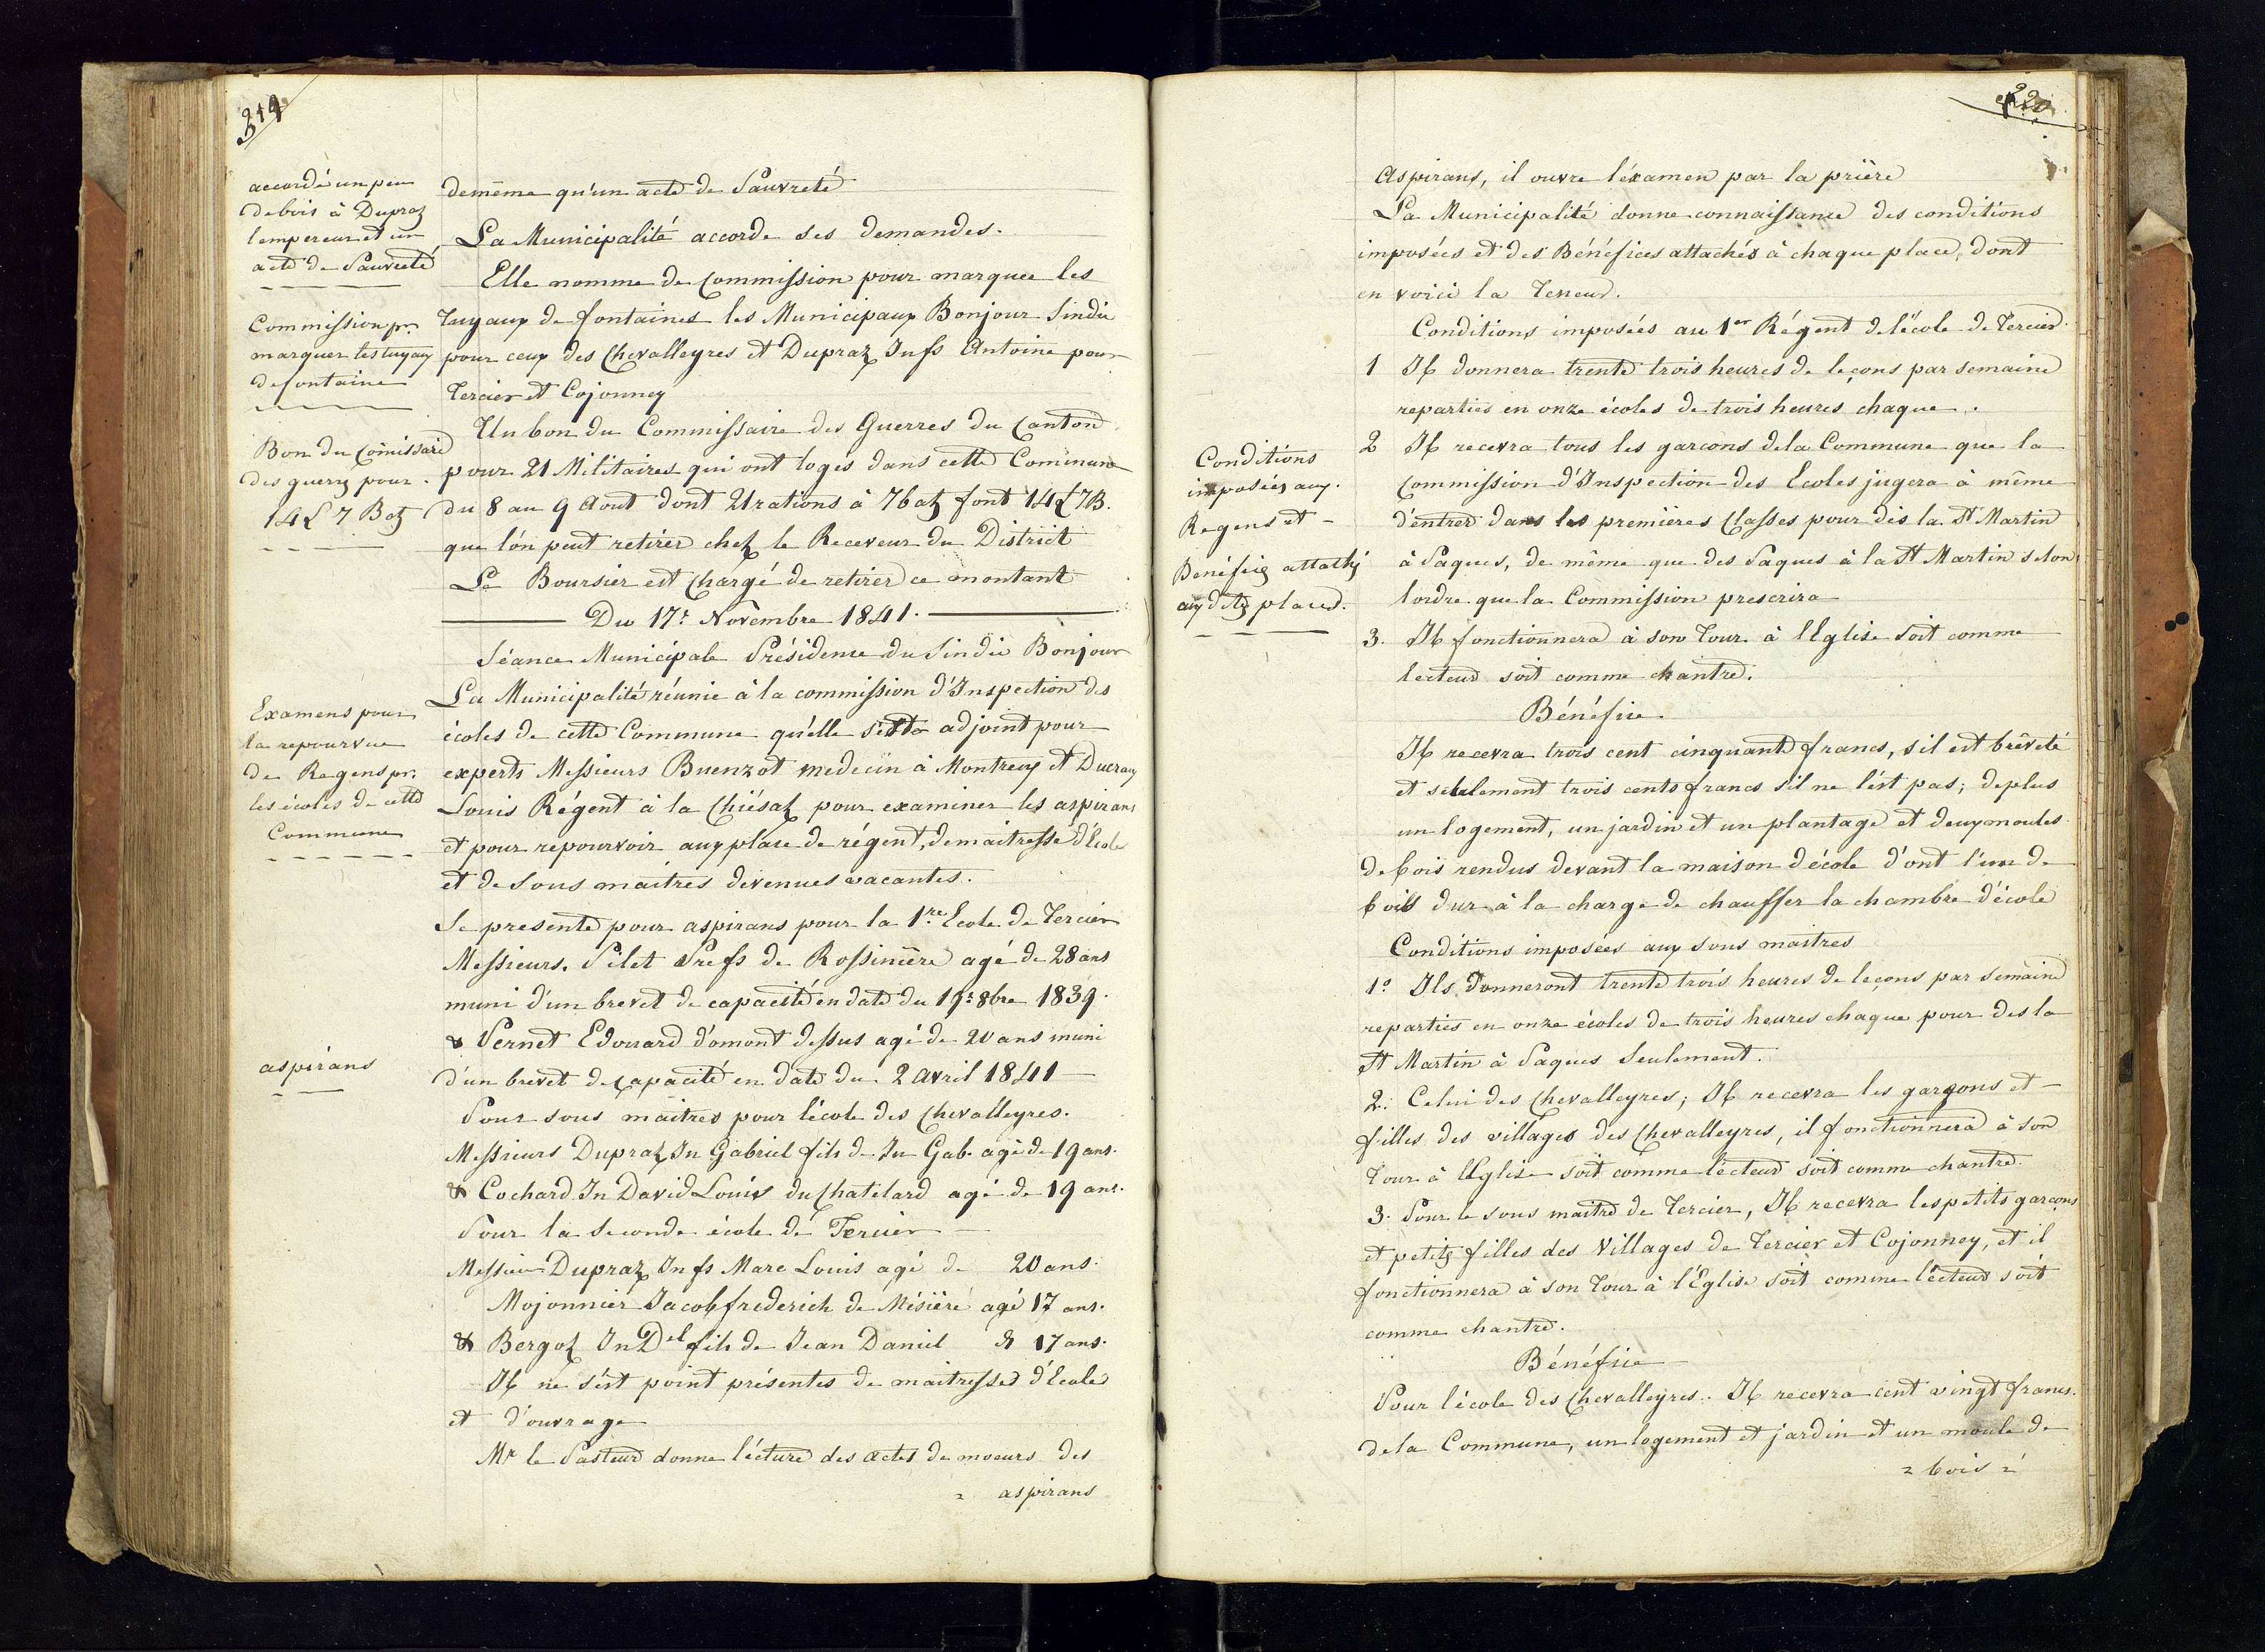 319
accordé un peu
debois à Dupraz
lempereur et un
acte de Pauvreté
Commission pr.
marquer les tuyaux
defontaine
Bon du Comissaire
des guerrs pour
14 £ 7 Batz
Examens pour
la repourvue
de Regens pr.
les écoles de cette
Commune
aspirans
demême qu'un acte de Pauvreté
La Municipalité accorde ses demandes.
Elle nomme de Commission pour marquer les
Tuyaux de fontaines les Municipaux Bonjour Sindic
pour ceux des Chevalleyres et Dupraz Jnfs Antoine pour
Tercier et Cojonney
Un bon du Commissaire des Guerres du Canton
pour 21 Militaires qui ont logés dans cette Commune
du 8 au 9 Aout dont 21 rations à 7 batz font 14£ 7B.
que l'on peut retirer chez le Receveur du District
Le Boursier est Chargé de retirer ce montant
Du 17e Novembre 1841.
Séance Municipale Présidence du Sindic Bonjour
La Municipalité réunie à la commission d'Inspection des
écoles de cette Commune qu'elle s'est adjoint pour
experts Messieurs Buenzot medecin à Montreux et Ducraux
Louis Régent à la Chiésaz pour examiner les aspirans
et pour repourvoir aux place de régent, demaitresse d'Ecole
et de Sous maitres devenues vacantes.
Se presente pour aspirans pour la 1re Ecole de Tercier
Messieurs. Pilet Prefs de Rossinière agé de 28 ans
muni d'un brevet de capacité en date du 19e 8bre 1839.
& Pernet Edouard d'omont dessus agé de 20 ans muni
d'un brevet de capacité en date du 2 avril 1841
Pour sous maitres pour l'école des Chevalleyres.
Messieurs Dupraz Jn Gabriel fils de Jn Gab. agé de 19 ans.
& Cochard Jn David Louis du Chatelard agé de 19 ans.
Pour la Seconde école de Tercier
Messieurs Dupraz Jnfs Marc Louis agé de 20 ans.
Mojonnier Jacobfrederich de Mésière agé 17 ans.
& Bergoz Jn Del fils de Jean Daniel & 17 ans.
Il ne s'est point présentés de maitresses d'Ecoles
et d'ouvrage
Mr le Pasteur donne lécture des actes de moeurs des
aspirans
320
Conditions
imposées aux
Regens et
Bénéfices attachés
aux dites places.
Aspirans, il ouvre l'éxamen par la prière
La Municipalité donne connaissance des conditions
imposées et des Bénéfices attachés à chaque place, dont
en voici la Teneur.
Conditions imposées au 1er Régent de l'école de Tercier.
1 Il donnera trente trois heures de leçons par semaine
reparties en onze écoles de trois heures chaque.
2 Il recevra tous les garcons dela Commune que la
Commission d'Inspection des Ecoles jugera à même
d'entrer dans les premières Classes pour dès la St Martin
à Paques, de même que des Paques à la St Martin selon
lordre que la Commission prescrira
3. Il fonctionnera à son Tour à l'Eglise soit comme
lecteur soit comme chantre.
Bénéfice.
Il recevra trois cent cinquante francs, s'il est brêveté
et seulement trois cents francs s'il ne l'ést pas; deplus
un logement, un jardin et un plantage et deux moules
de bois rendus devant la maison d'école d'ont l'un de
bois dur à la charge de chauffer la chambre d'école
Conditions imposées aux Sous maitres
1o Ils donneront trente trois heures de leçons par Semaine
reparties en onze écoles de trois heures chaque pour des la
St Martin à Paques Seulement.
2. Celui des Chevalleyres; Il recevra les garçons et
filles des villages des Chevalleyres, il fonctionnera à son
Tour à l'Eglise soit comme lécteur soit comme chantre.
3. Pour le sous maitre de Tercier, Il recevra les petits garçons
et petites filles des Villages de Tercier et Cojonney, et il
fonctionnera à son Tour à l'Eglise soit comme lécteur soit
comme chantre.
Bénéfice
Pour l'école des Chevalleyres. Il recevra cent vingt francs.
dela Commune, un logement et jardin et un moule de
bois